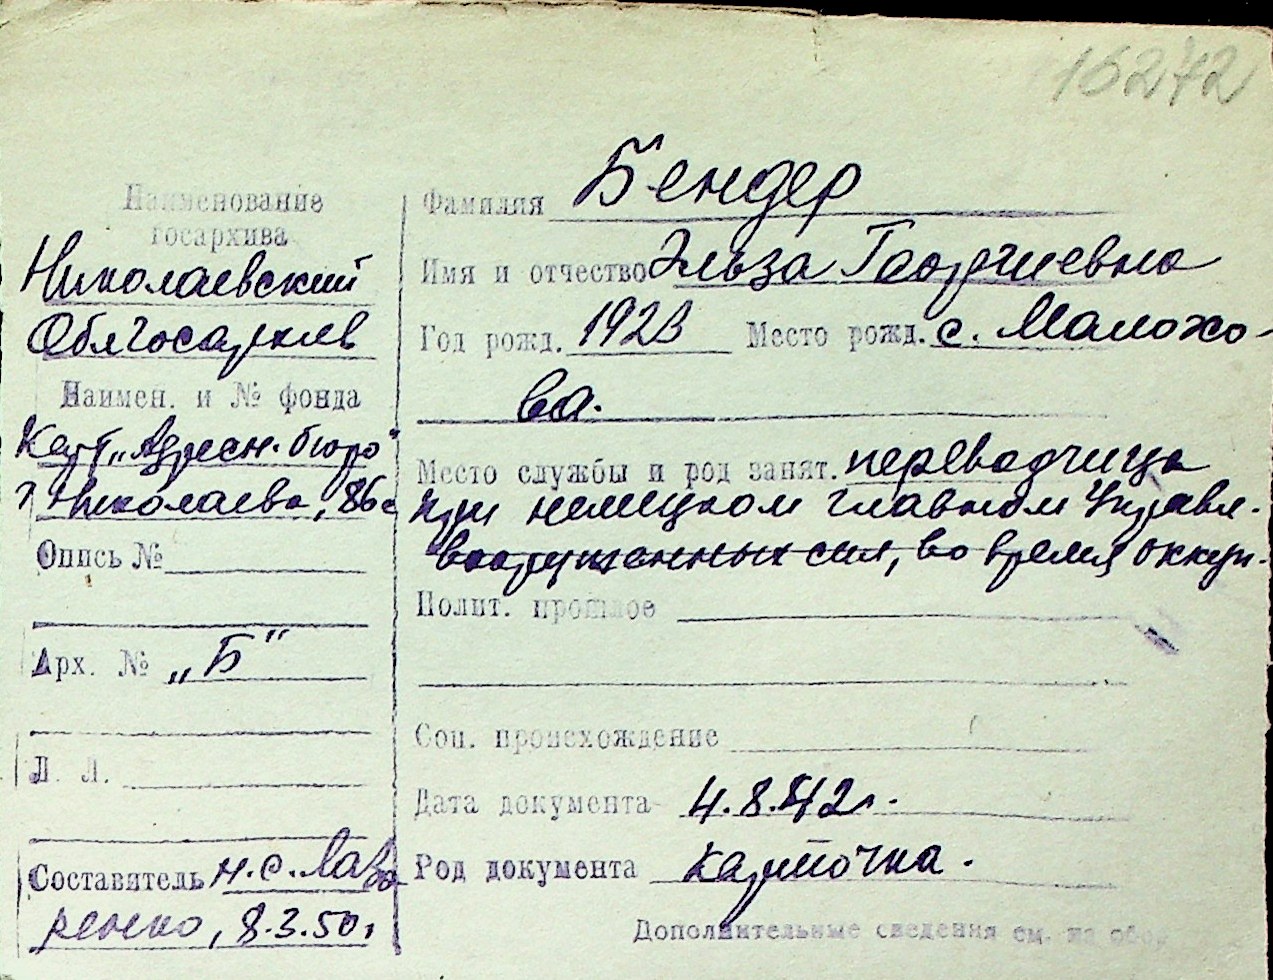 16242
Наименование
госархива
Николаевский
Облгосархив
Наимен. и № фонда
Карт. „Адресн. бюро"
г Николаева, 86с
Опись №
Арх. № „Б"
Л. Л.
Составитель Н. С. Лаза-
ренко, 8.3.50г
Фамилия Бендер
Имя и отчество Эльза Георгиевна
Год рожд. 1923 Место рожд. с. Малохо-
ва.
Место службы и род занят. переводчица
при немецком главном Управл.
вооруженных сил, во время оккуп.
Полит. прошлое
Соц. происхождение
Дата документа 4.8.42г.
Род документа карточка.
Дополнительные сведения см. на обор